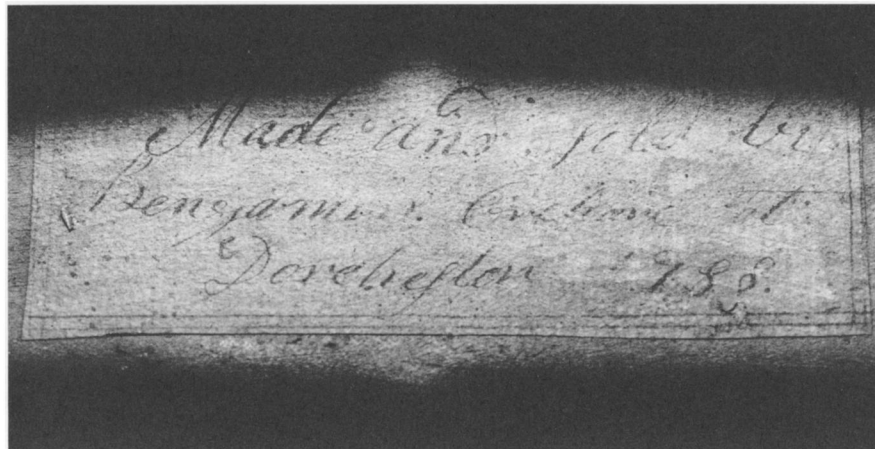 Made and sold by
Benjamin Crehore at
Dorchester 788.